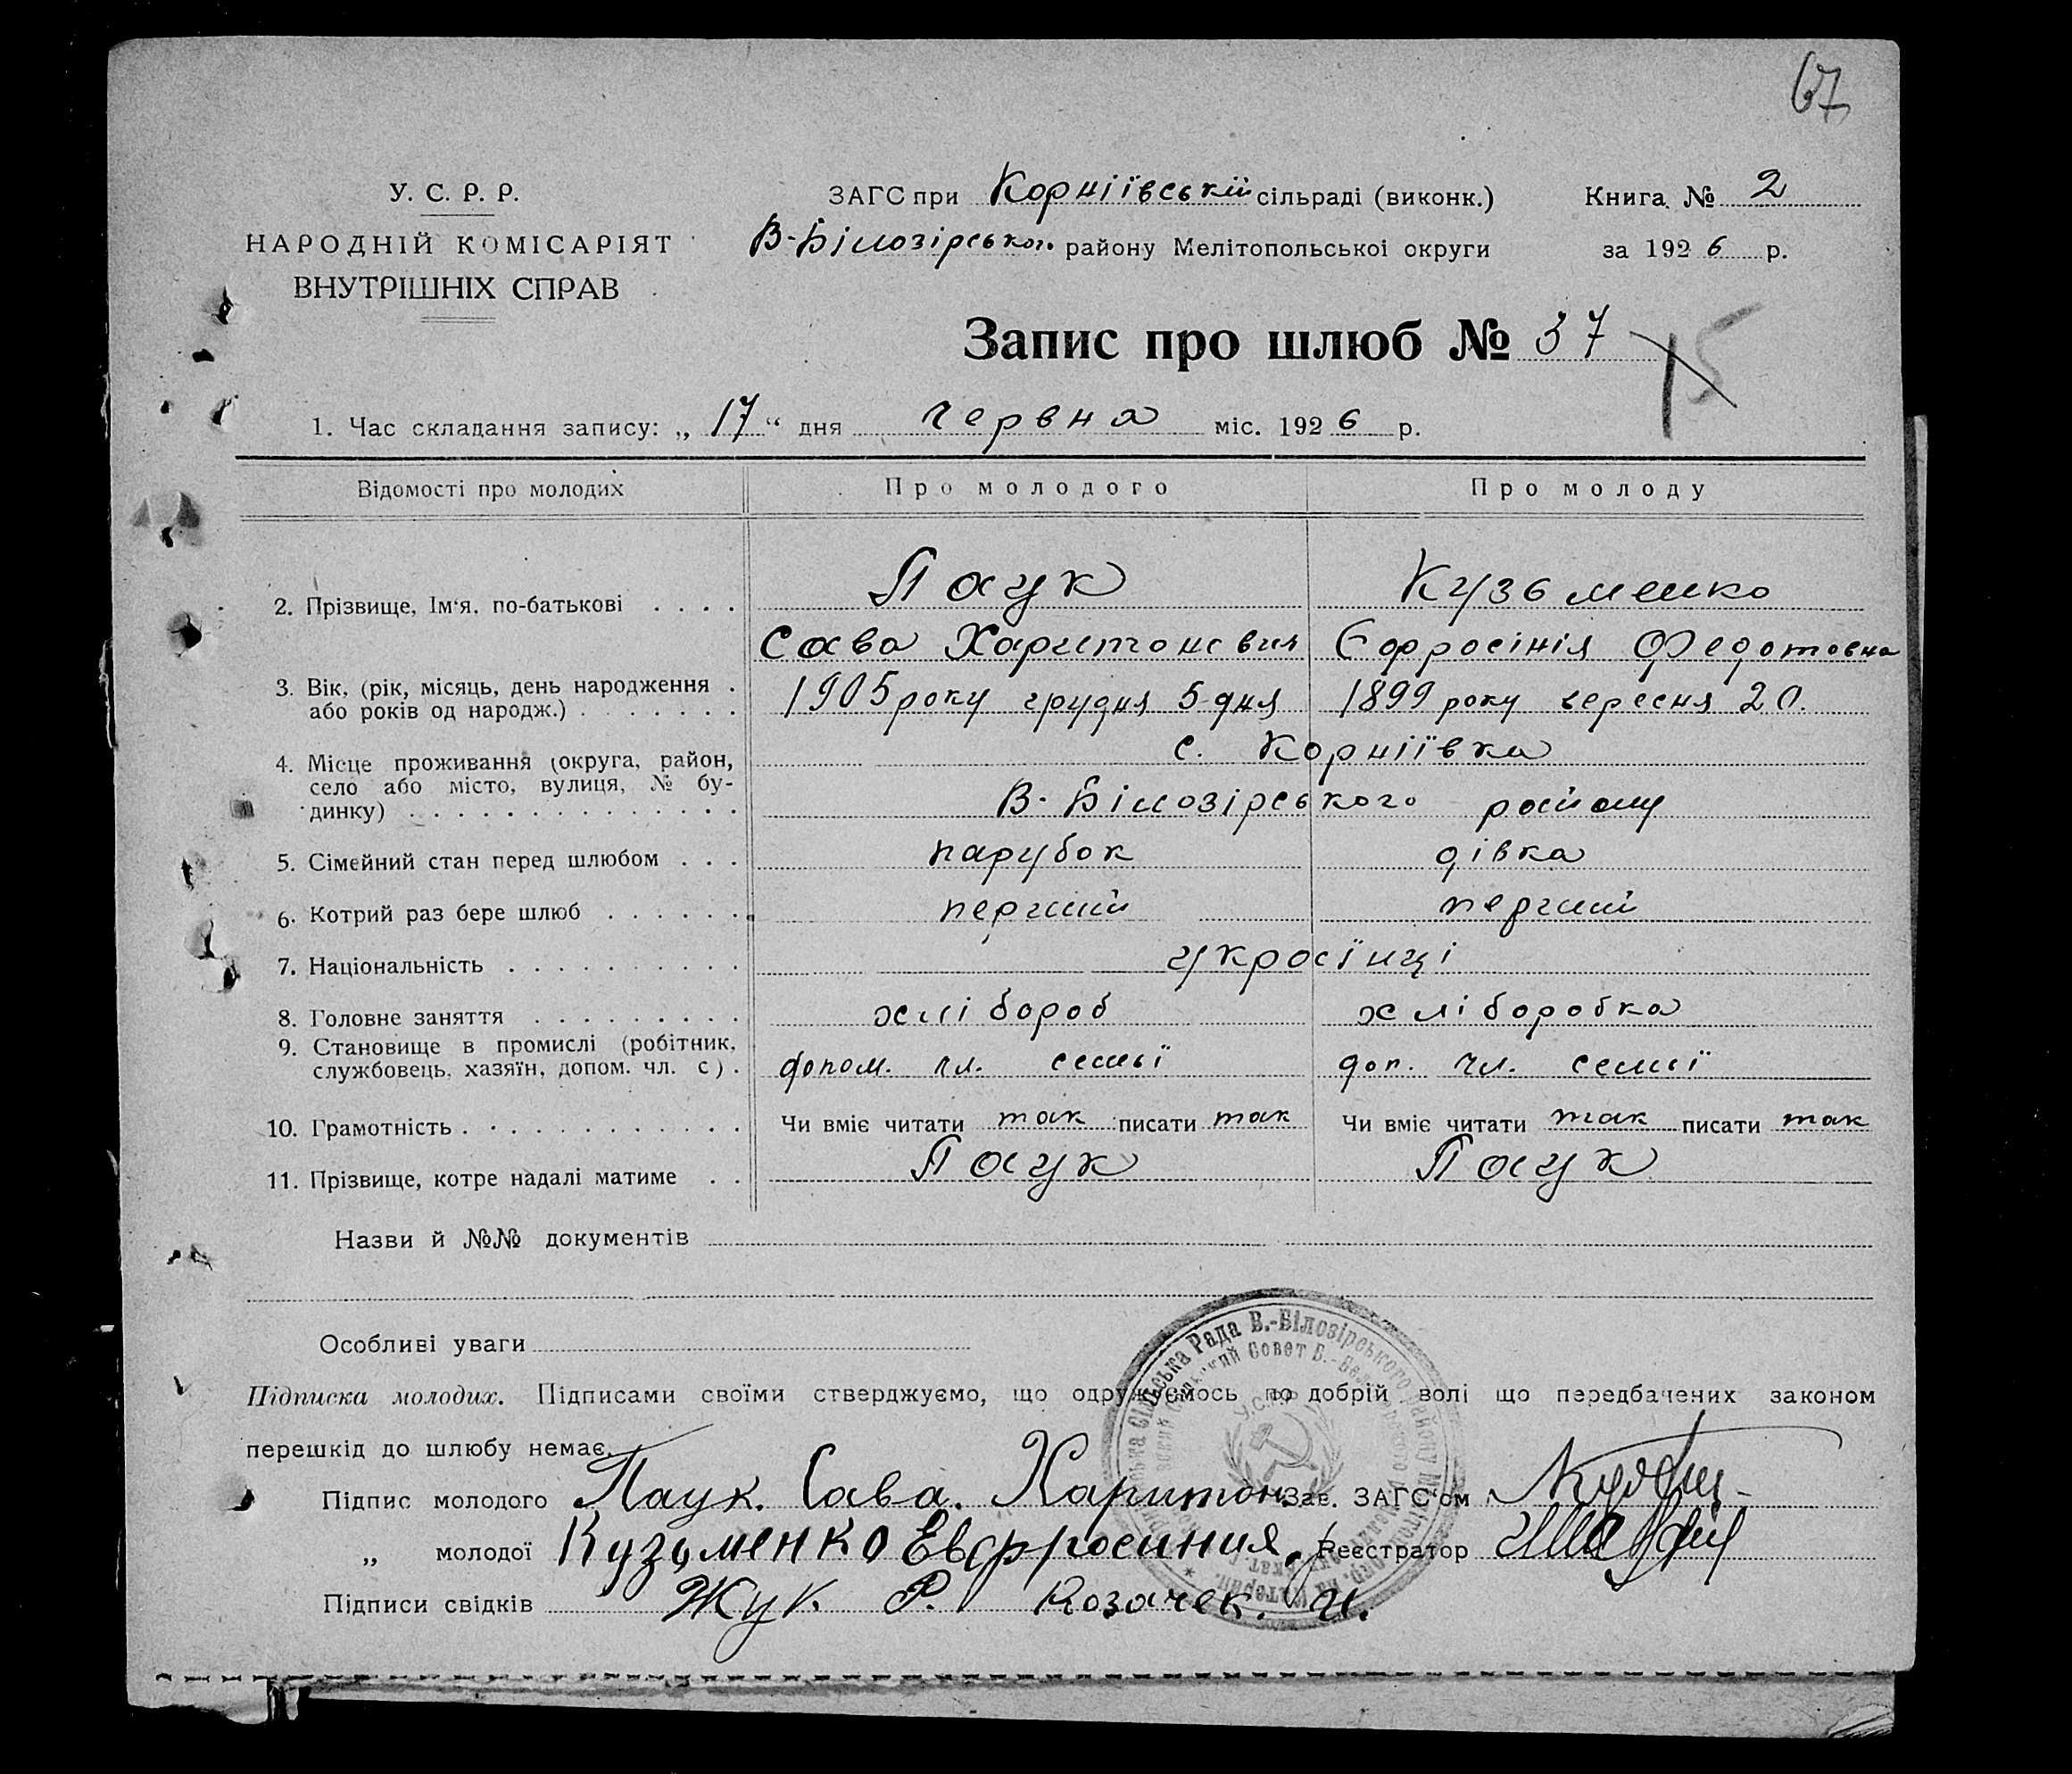 67
У. С. Р. Р.
НАРОДНІЙ КОМІСАРІЯТ
ВНУТРІШНІХ СПРАВ
ЗАГС при Корніївській сільраді (виконк.)
В-Білозірського району Мелітопольської округи
Книга № 2
за 1926 р.
Запис про шлюб № 37
15
1. Час складання запису: „17“ дня червня міс. 1926 р.
Відомості про молодих Про молодого Про молоду
2. Прізвище, Ім'я, по-батькові . . . . Паук Кузьменко
Сава Харитонович Єфросінія Федотовна
3. Вік, (рік, місяць, день народження . або років од народж.) . . . . . . . 1905 року грудня 5 дня 1899 року вересня 20.
4. Місце проживання (округа, район, с. Корніївка
село або місто, вулиця, № бу-
динку) . . . . . . . . . . . . . . В-Білозірського району
5. Сімейний стан перед шлюбом . . . парубок дівка
6. Котрий раз бере шлюб . . . . . . перший перший
7. Національність . . . . . . . . . . українці
8. Головне заняття . . . . . . . . . хлібороб хліборобка
9. Становище в промислі (робітник,
службовець, хазяїн, допом. чл. с). допом. чл. семьї доп. чл. семьї
10. Грамотність . . . . . . . . . . . . Чи вміє читати так писати так Чи вміє читати так писати так
11. Прізвище, котре надалі матиме . . Паук Паук
Назви й №№ документів
Особливі уваги
Підписка молодих. Підписами своїми стверджуємо, що одружуємось по добрій волі що передбачених законом
перешкід до шлюбу немає.
Підпис молодого Паук. Сава. Харитон. Зав. ЗАГС'ом
„ молодої Кузьменко Евфросиния. Реєстратор
Підписи свідків Жук Р. Козачек. И.
Сільська Рада В.-Білозірського району
У.С.Р.Р.